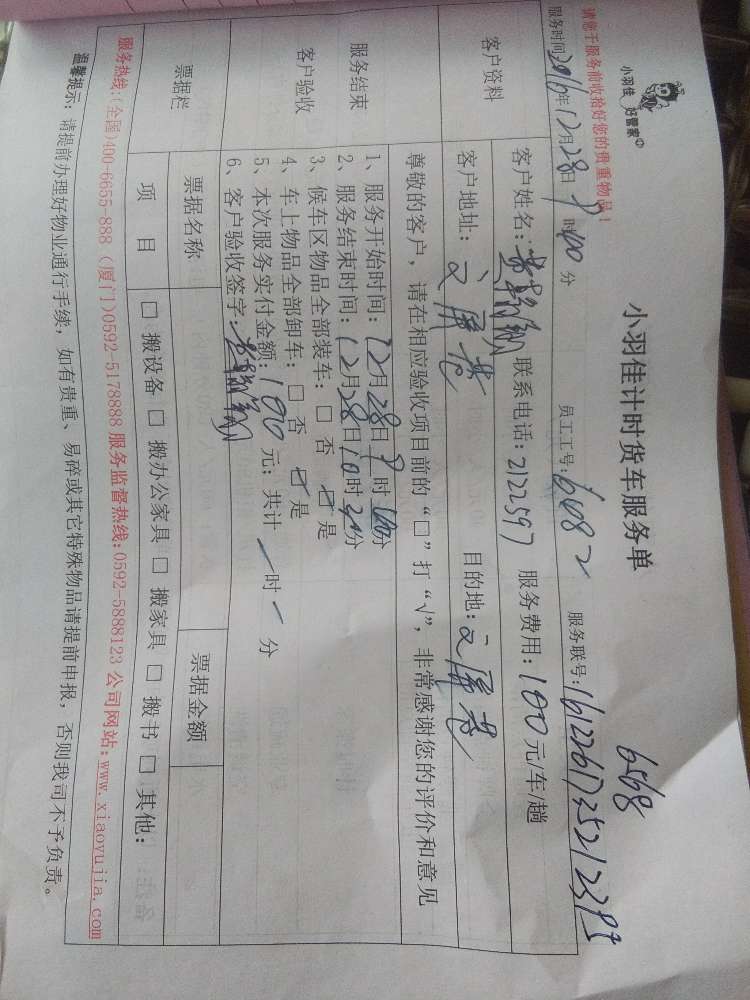 小羽佳 好管家
小羽佳计时货车服务单
6568
请您于服务前收拾好您的贵重物品!
服务时间:2016年12月28日9时00分 员工工号:6082 服务联号:
客户资料
客户姓名: 联系电话:2122597 服务费用:100元/车/趟
客户地址:文屏巷 目的地:文屏巷
尊敬的客户,请在相应验收项目前的“□”打“√”,非常感谢您的评价和意见
服务结束
客户验收
1、服务开始时间:12月28日9时00分
2、服务结束时间:12月28日10时20分
3、候车区物品全部装车:□否 ☑是
4、车上物品全部卸车:□否 ☑是
5、本次服务实付金额:100元;共计 / 时 / 分
6、客户验收签字:
票据栏 票据名称 票据金额
项目 □搬设备 □搬办公家具 □搬家具 □搬书 □其他:
服务热线:(全国)400-6655-888 (厦门)0592-5178888 服务监督热线:0592-5888123 公司网站:www.xiaoyujia.com
温馨提示:请提前办理好物业通行手续,如有贵重、易碎或其它特殊物品请提前申报,否则我司不予负责。